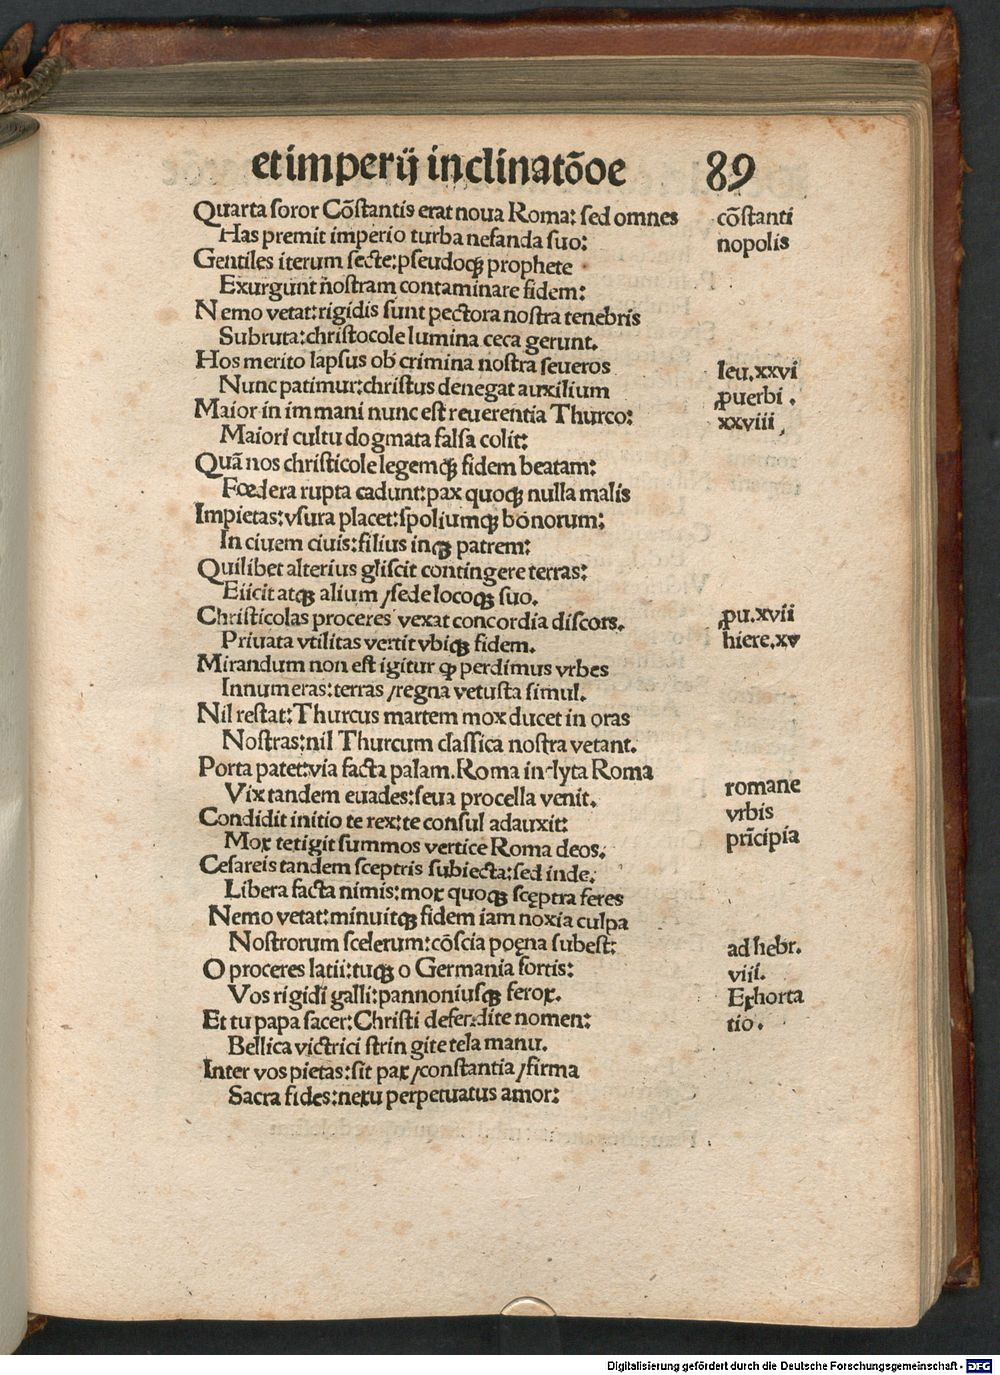 et imperij inclinatõoe 89
Quarta soror Cõstantis erat noua Roma: sed omnes
Has premit imperio turba nefanda suo:
Gentiles iterum secte: pseudoqꝫ prophete
Exurgunt ñostram contaminare fidem:
Nemo vetat: rigidis sunt pectora nostra tenebris
Subruta: christocole lumina ceca gerunt.
Hos merito lapsus ob crimina nostra seueros
Nunc patimur: christus denegat auxilium
Maior in immani nunc est reuerentia Thurco:
Maiori cultu dogmata falsa colit:
Quã nos christicole legemqꝫ fidem beatam:
Fœdera rupta cadunt: pax quoqꝫ nulla malis
Impietas: vsura placet: spoliumqꝫ bonorum:
In ciuem ciuis: filius inqꝫ patrem:
Quilibet alterius gliscit contingere terras:
Eiicit atqꝫ alium / sede locoqꝫ suo.
Christicolas proceres vexat concordia discors.
Priuata vtilitas vertit vbiqꝫ fidem.
Mirandum non est igitur ꝙ perdimus vrbes
Innumeras: terras / regna vetusta simul.
Nil restat: Thurcus martem mox ducet in oras
Nostras: nil Thurcum classica nostra vetant.
Porta patet: via facta palam. Roma inclyta Roma
Vix tandem euades: seua procella venit.
Condidit initio te rex: te consul adauxit:
Mox tetigit summos vertice Roma deos.
Cesareis tandem sceptris subiecta: sed inde.
Libera facta nimis: mox quoqꝫ scęptra feres
Nemo vetat: minuitqꝫ fidem iam noxia culpa
Nostrorum scelerum: cõscia pœna subest:
O proceres latii: tuqꝫ o Germania fortis:
Vos rigidi galli: pannoniusqꝫ ferox.
Et tu papa sacer: Christi defendite nomen:
Bellica victrici stringite tela manu.
Inter vos pietas: sit pax / constantia / firma
Sacra fides: nexu perpetuatus amor:
cõstanti
nopolis
leu.xxvi
ꝓuerbi.
xxviii
ꝓu.xvii
hiere.xv
romane
vrbis
prĩcipia
ad hebr.
viii.
Exhorta
tio.
Digitalisierung gefördert durch die Deutsche Forschungsgemeinschaft - DFG